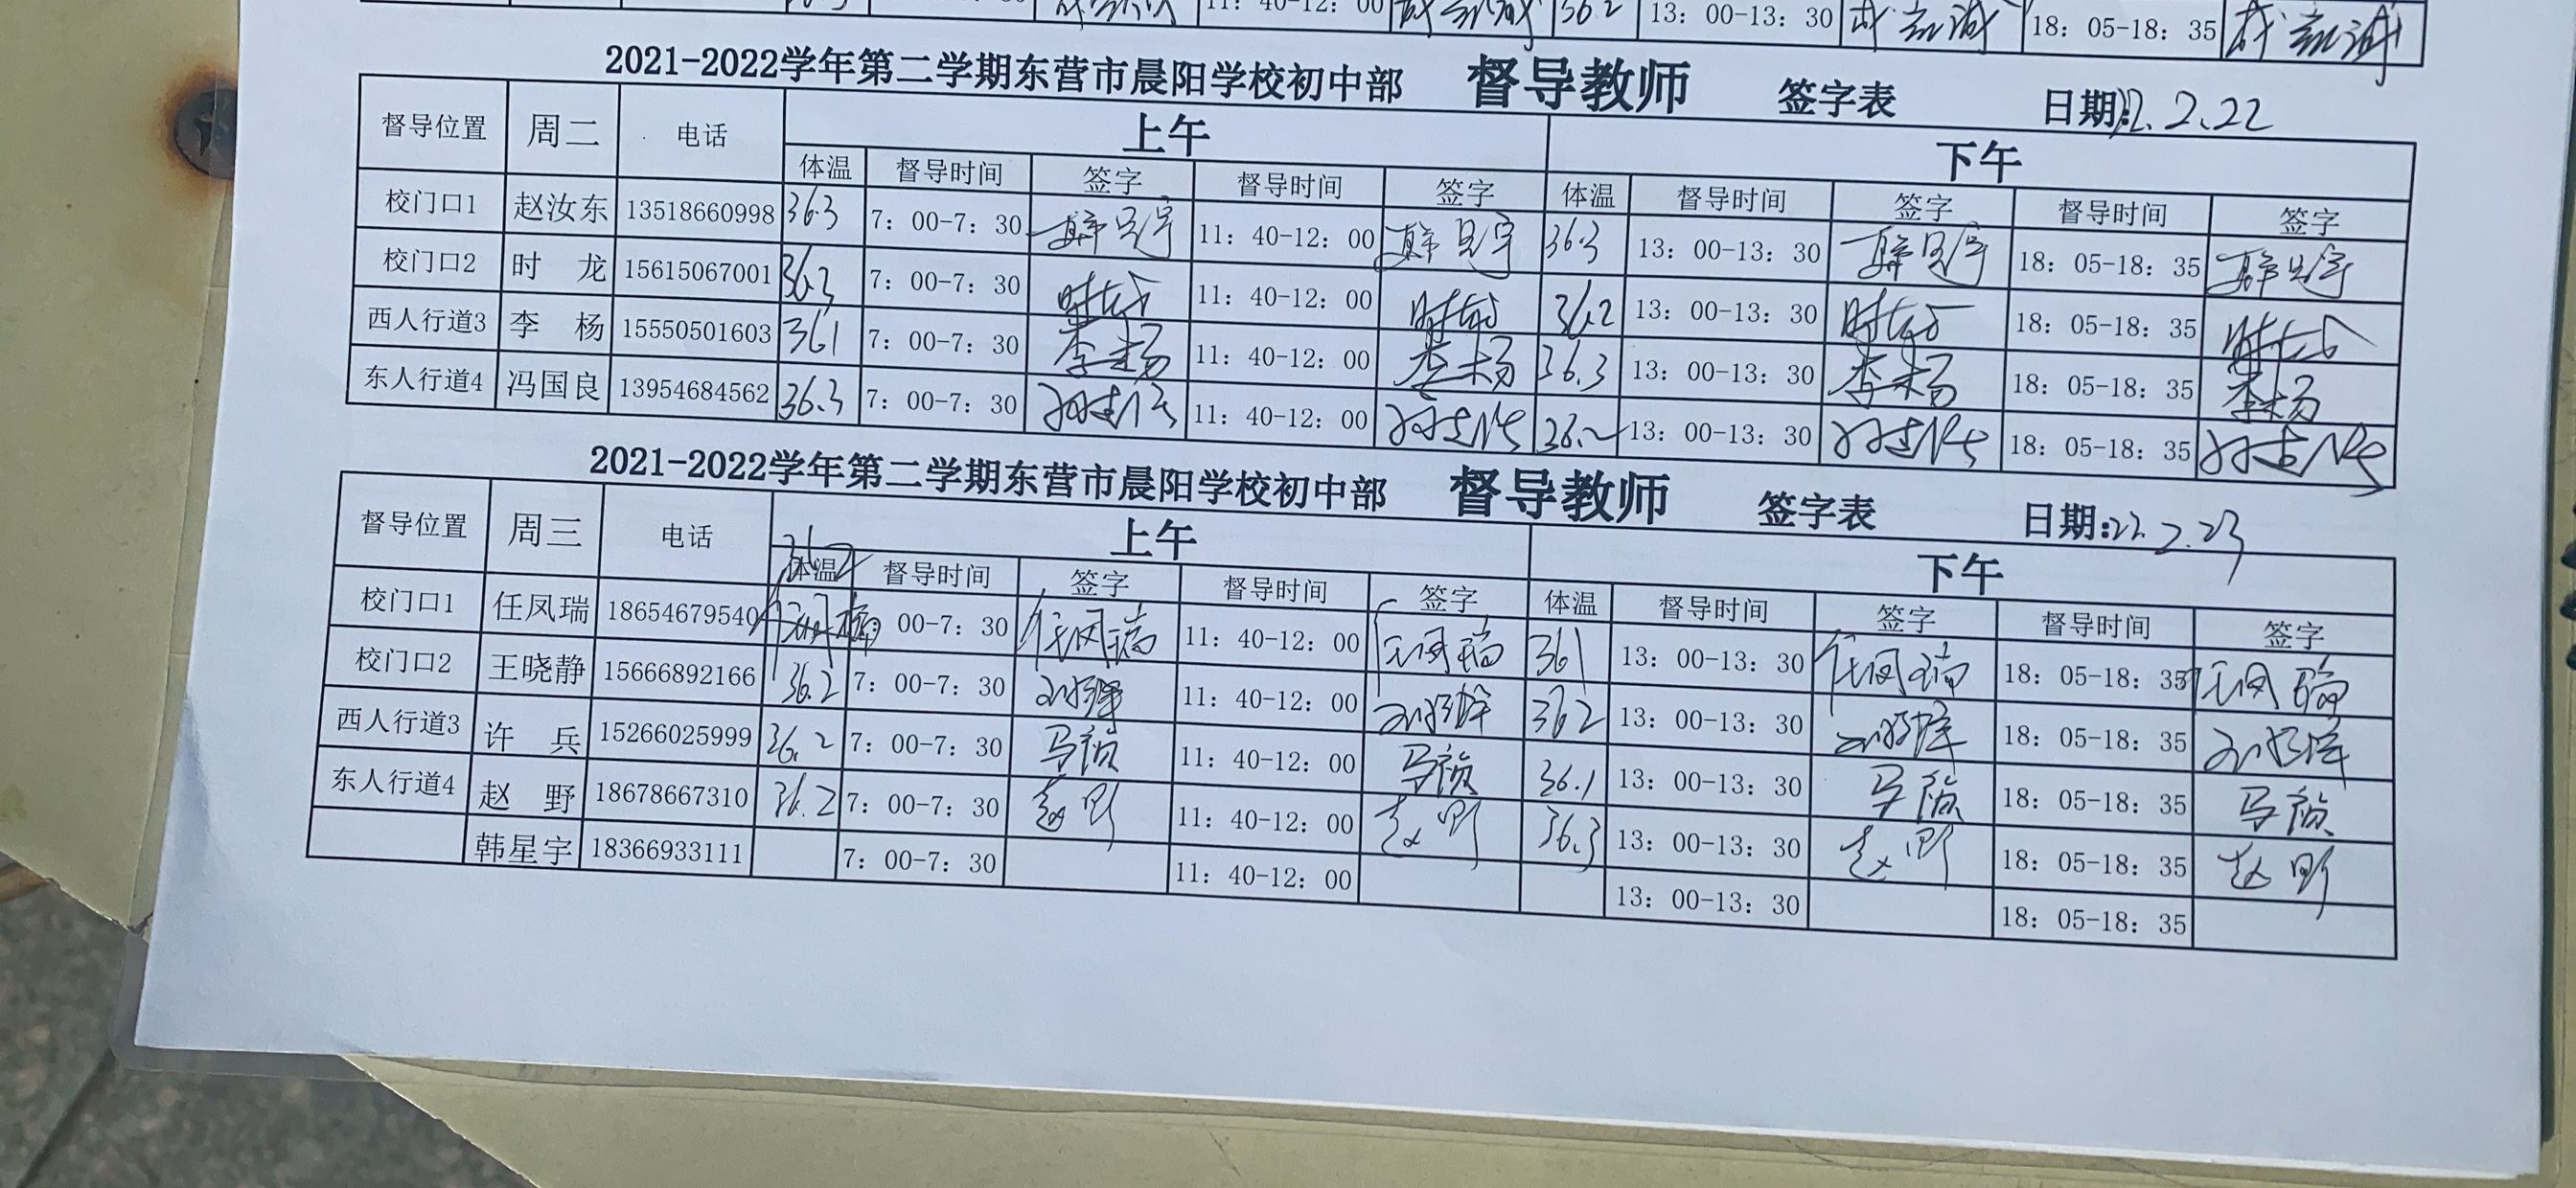 11: 40-12: 00 36.2 13: 00-13: 30 18: 05-18: 35
2021-2022学年第二学期东营市晨阳学校初中部 督导教师 签字表 日期:22.2.22
督导位置 周二 电话 上午 下午
体温 督导时间 签字 督导时间 签字 体温 督导时间 签字 督导时间 签字
校门口1 赵汝东 13518660998 36.3 7: 00-7: 30 11: 40-12: 00 36.3 13: 00-13: 30 18: 05-18: 35
校门口2 时 龙 15615067001 36.3 7: 00-7: 30 11: 40-12: 00 36.2 13: 00-13: 30 18: 05-18: 35
西人行道3 李 杨 15550501603 361 7: 00-7: 30 李杨 11: 40-12: 00 李杨 36.3 13: 00-13: 30 李杨 18: 05-18: 35 李杨
东人行道4 冯国良 13954684562 36.3 7: 00-7: 30 11: 40-12: 00 36.2 13: 00-13: 30 18: 05-18: 35
2021-2022学年第二学期东营市晨阳学校初中部 督导教师 签字表 日期:22.2.23
督导位置 周三 电话 上午 下午
36.2
体温 督导时间 签字 督导时间 签字 体温 督导时间 签字 督导时间 签字
校门口1 任凤瑞 18654679540 00-7: 30 任凤瑞 11: 40-12: 00 任凤瑞 361 13: 00-13: 30 任凤瑞 18: 05-18: 35 任凤瑞
校门口2 王晓静 15666892166 36.2 7: 00-7: 30 11: 40-12: 00 362 13: 00-13: 30 18: 05-18: 35
西人行道3 许 兵 15266025999 36.2 7: 00-7: 30 11: 40-12: 00 36.1 13: 00-13: 30 18: 05-18: 35
东人行道4 赵 野 18678667310 36.2 7: 00-7: 30 赵野 11: 40-12: 00 赵野 36.3 13: 00-13: 30 赵野 18: 05-18: 35 赵野
韩星宇 18366933111 7: 00-7: 30 11: 40-12: 00 13: 00-13: 30 18: 05-18: 35